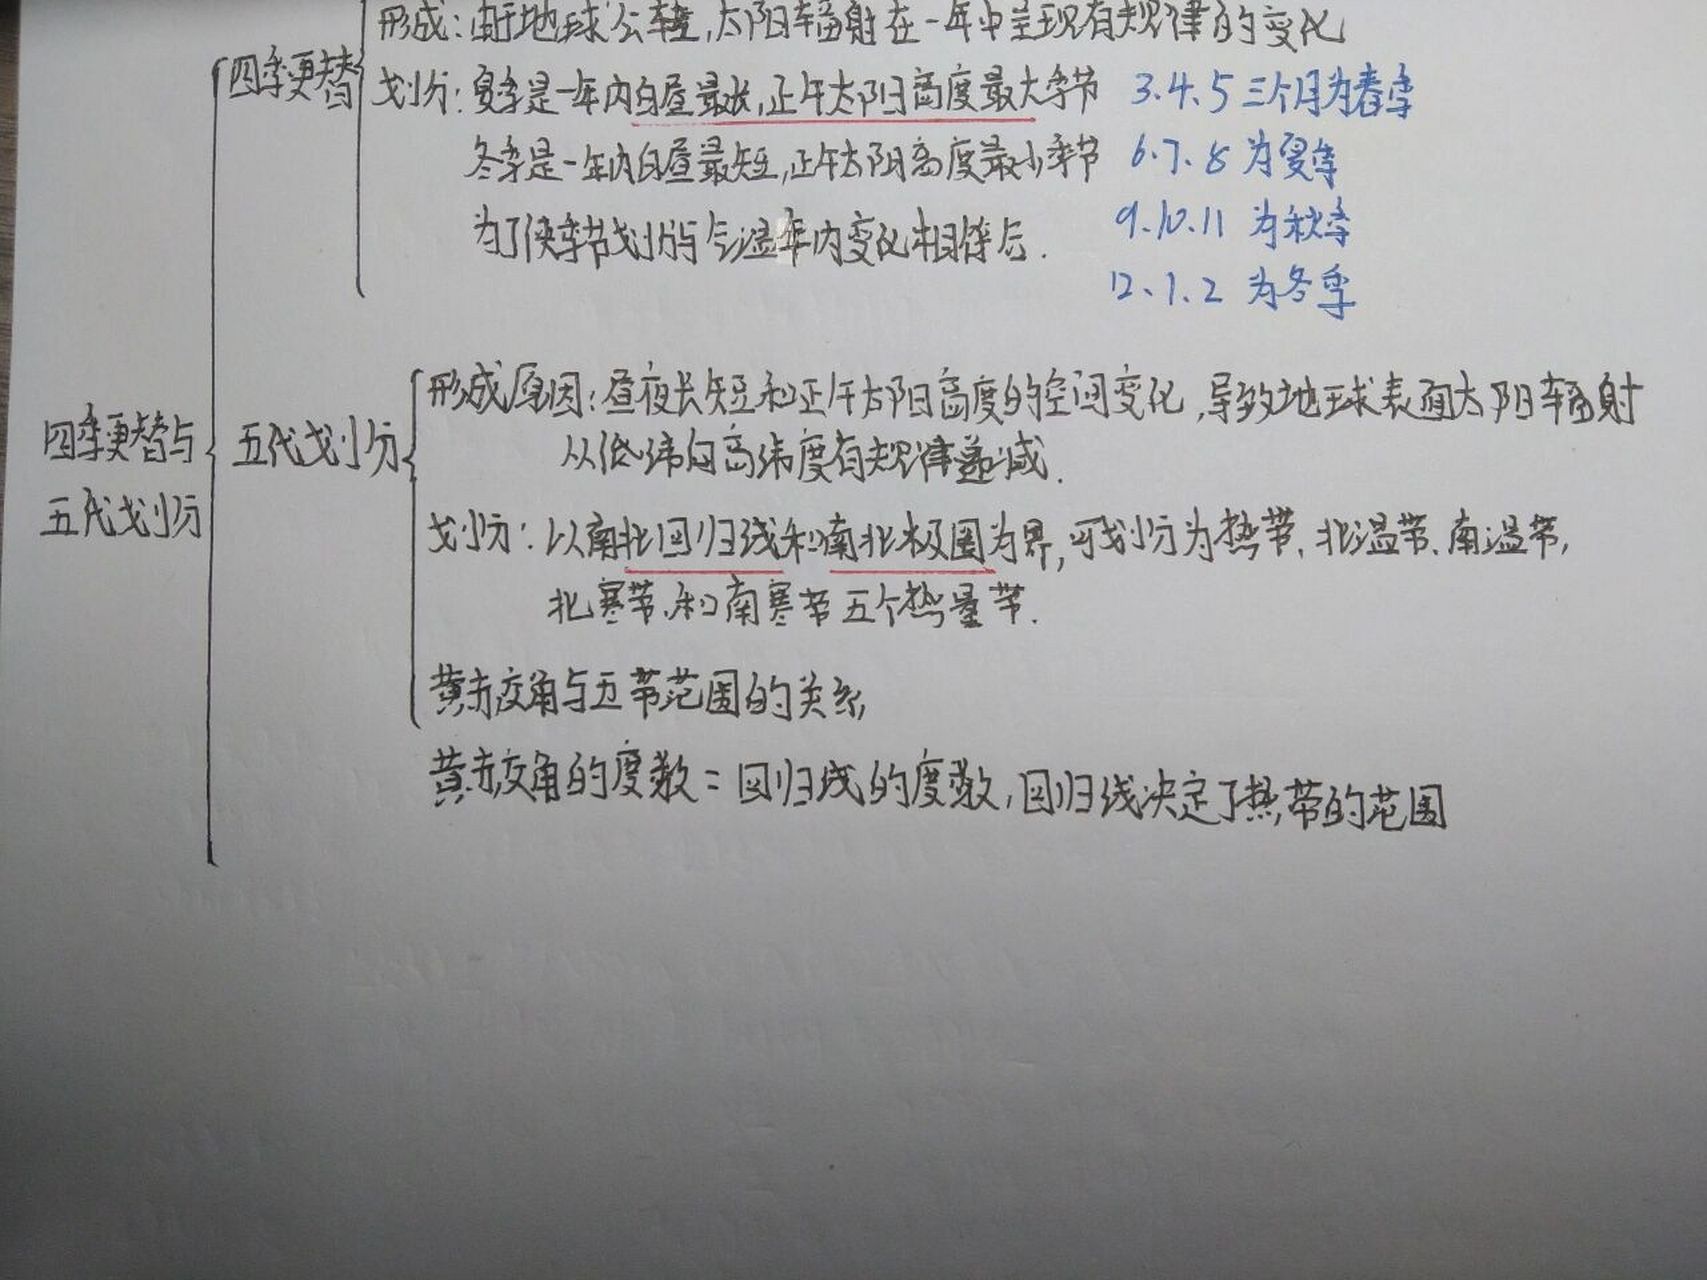 形成:由于地球公转,太阳辐射在一年中呈现有规律的变化
四季更替
划分:夏季是一年内白昼最长,正午太阳高度最大季节 3.4.5 三个月为春季
冬季是一年内白昼最短,正午太阳高度最小季节 6.7.8 为夏季
为了使季节划分与气温年内变化相符合. 9.10.11 为秋季
12、1、2 为冬季
形成原因:昼夜长短和正午太阳高度的空间变化,导致地球表面太阳辐射
四季更替与 五代划分 从低纬向高纬度有规律递减.
五代划分 划分:以南北回归线和南北极圈为界,可划分为热带、北温带、南温带,
北寒带、和南寒带五个热量带.
黄赤交角与五带范围的关系
黄赤交角的度数=回归线的度数,回归线决定了热带的范围